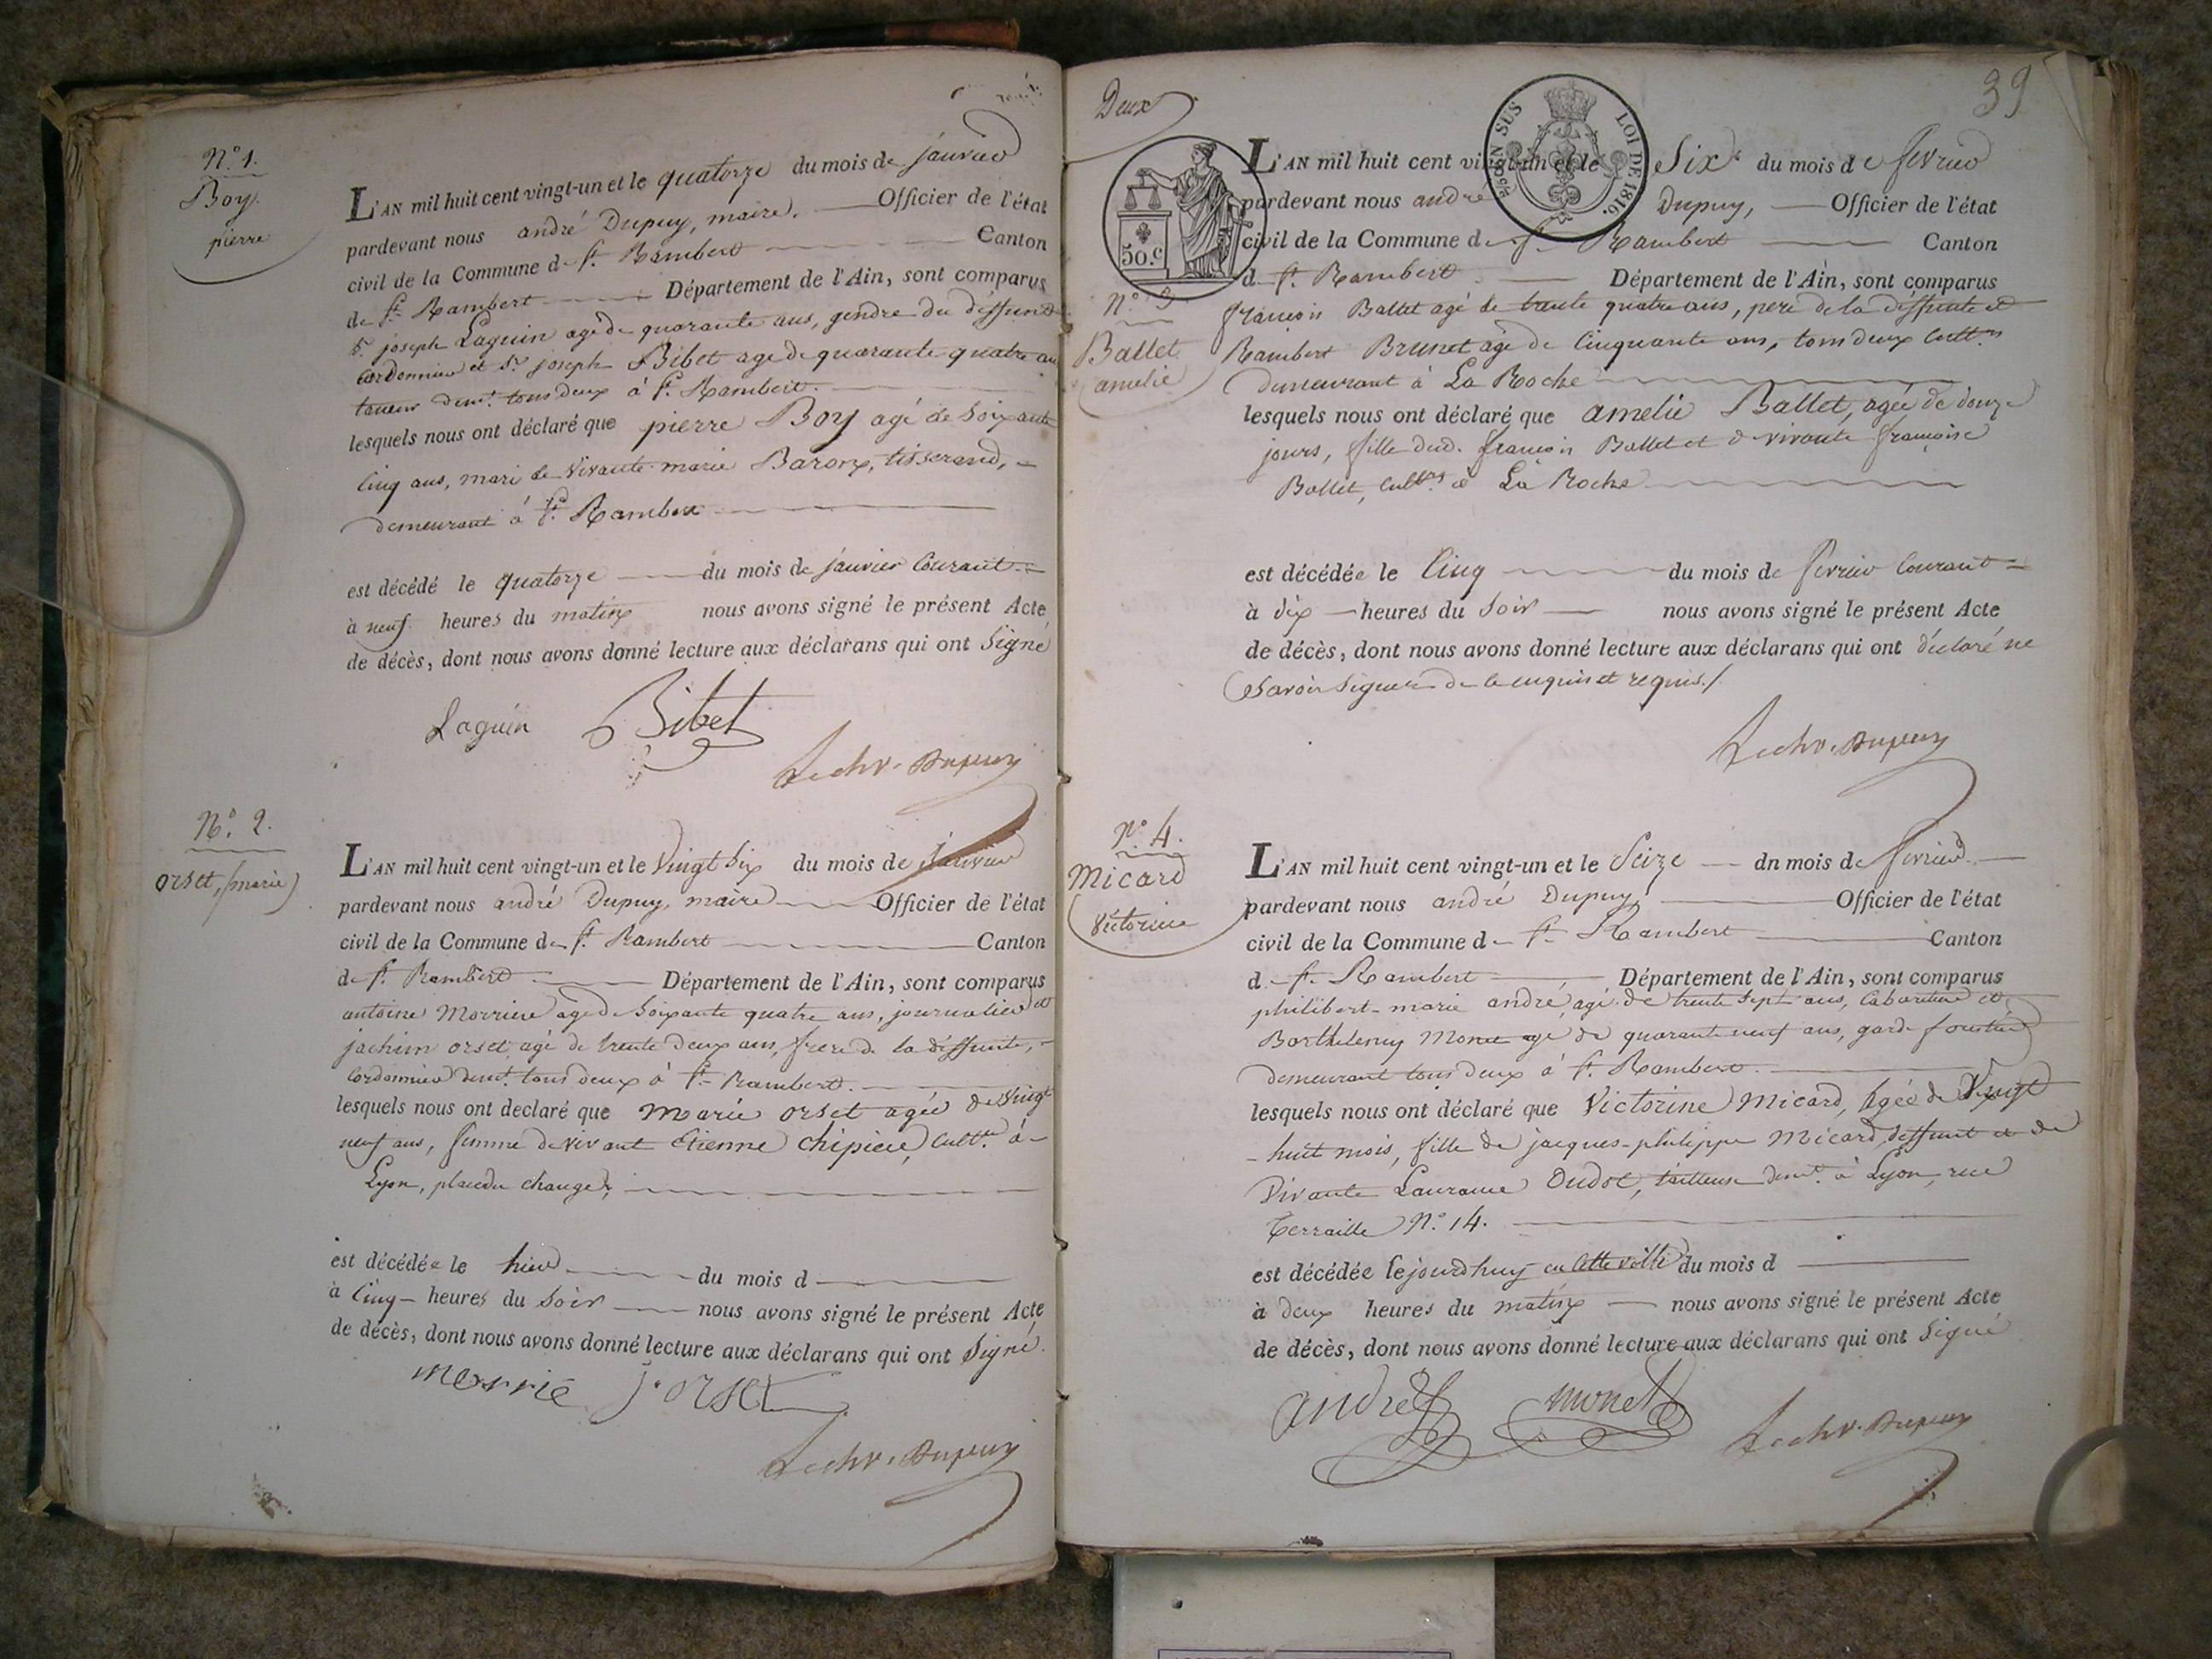 N.o 1.
Boy
pierre
L'AN mil huit cent vingt-un et le quatorze du mois de janvier
pardevant nous andré Dupuy, maire, Officier de l'état
civil de la Commune de St. Rambert Canton
de St. Rambert Département de l'Ain, sont comparus
Sr. joseph Laguin agé de quarante ans, gendre du deffunt
cordonnier et Sr. joseph Bibet age de quarante quatre ans
taneur demt. tous deux à St. Rambert.
lesquels nous ont déclaré que pierre Boy agé de soixante
cinq ans, mari de vivante marie Baron, tisserand,
demeurant à St. Rambert
est décédé le quatorze du mois de janvier courant
à neuf heures du matin nous avons signé le présent Acte
de décès, dont nous avons donné lecture aux déclarans qui ont signé
Laguin Bibet
Dupuy
N.o 2.
orset, (marie)
L'AN mil huit cent vingt-un et le vingt six du mois de janvier
pardevant nous andré Dupuy, maire Officier de l'état
civil de la Commune de St. Rambert Canton
de St. Rambert Département de l'Ain, sont comparus
antoine Morrier age de soixante quatre ans, journalier et
jachim orset agé de trente deux ans, frere de la deffunte,
cordonnier demt. tous deux à St. Rambert.
lesquels nous ont declaré que marie orset agée de vingt
neuf ans, femme de vivant Etienne chipier, cultr. à
Lyon, place du change,
est décédée le hier du mois d
à cinq heures du soir nous avons signé le présent Acte
de décès, dont nous avons donné lecture aux déclarans qui ont signé.
morrié j. orset
Dupuy
Deux
39
EN SUS LOI DE 1816.
50.c
L'AN mil huit cent vingt-un et le Six du mois de fevrier
pardevant nous andré Dupuy, Officier de l'état
civil de la Commune de St. Rambert Canton
d St. Rambert Département de l'Ain, sont comparus
N.o 3
Ballet
amelie
françois Ballet agé de trente quatre ans, pere de la deffunte et
Rambert Brunet agé de cinquante ans, tous deux cultrs
demeurant à La Roche
lesquels nous ont déclaré que amelie Ballet, agée de douze
jours, fille dud. françois Ballet et d vivante françoise
Ballet, cultrs à La Roche
est décédée le cinq du mois de fevrier courant
à dix heures du soir nous avons signé le présent Acte
de décès, dont nous avons donné lecture aux déclarans qui ont déclaré ne
savoir signer de ce enquis et requis./.
Dupuy
N.o 4.
Micard
victorine
L'AN mil huit cent vingt-un et le Seize dn mois de fevrier
pardevant nous andré Dupuy, Officier de l'état
civil de la Commune d St. Rambert Canton
d St. Rambert Département de l'Ain, sont comparus
philibert-marie andré, agé de trente sept ans, cabaretier et
Barthelemy Monet agé de quarante neuf ans, garde forestier
demeurant tous deux à St. Rambert
lesquels nous ont déclaré que victorine Micard, agée de vingt
huit mois, fille de jacques-philippe Micard, deffunt et de
vivante Laurance Oudot, tailleuse demt. à Lyon, rue
Terraille N.o 14.
est décédée le jourdhuy en cette ville du mois d
à deux heures du matin nous avons signé le présent Acte
de décès, dont nous avons donné lecture aux déclarans qui ont signé
andré monet
Dupuy